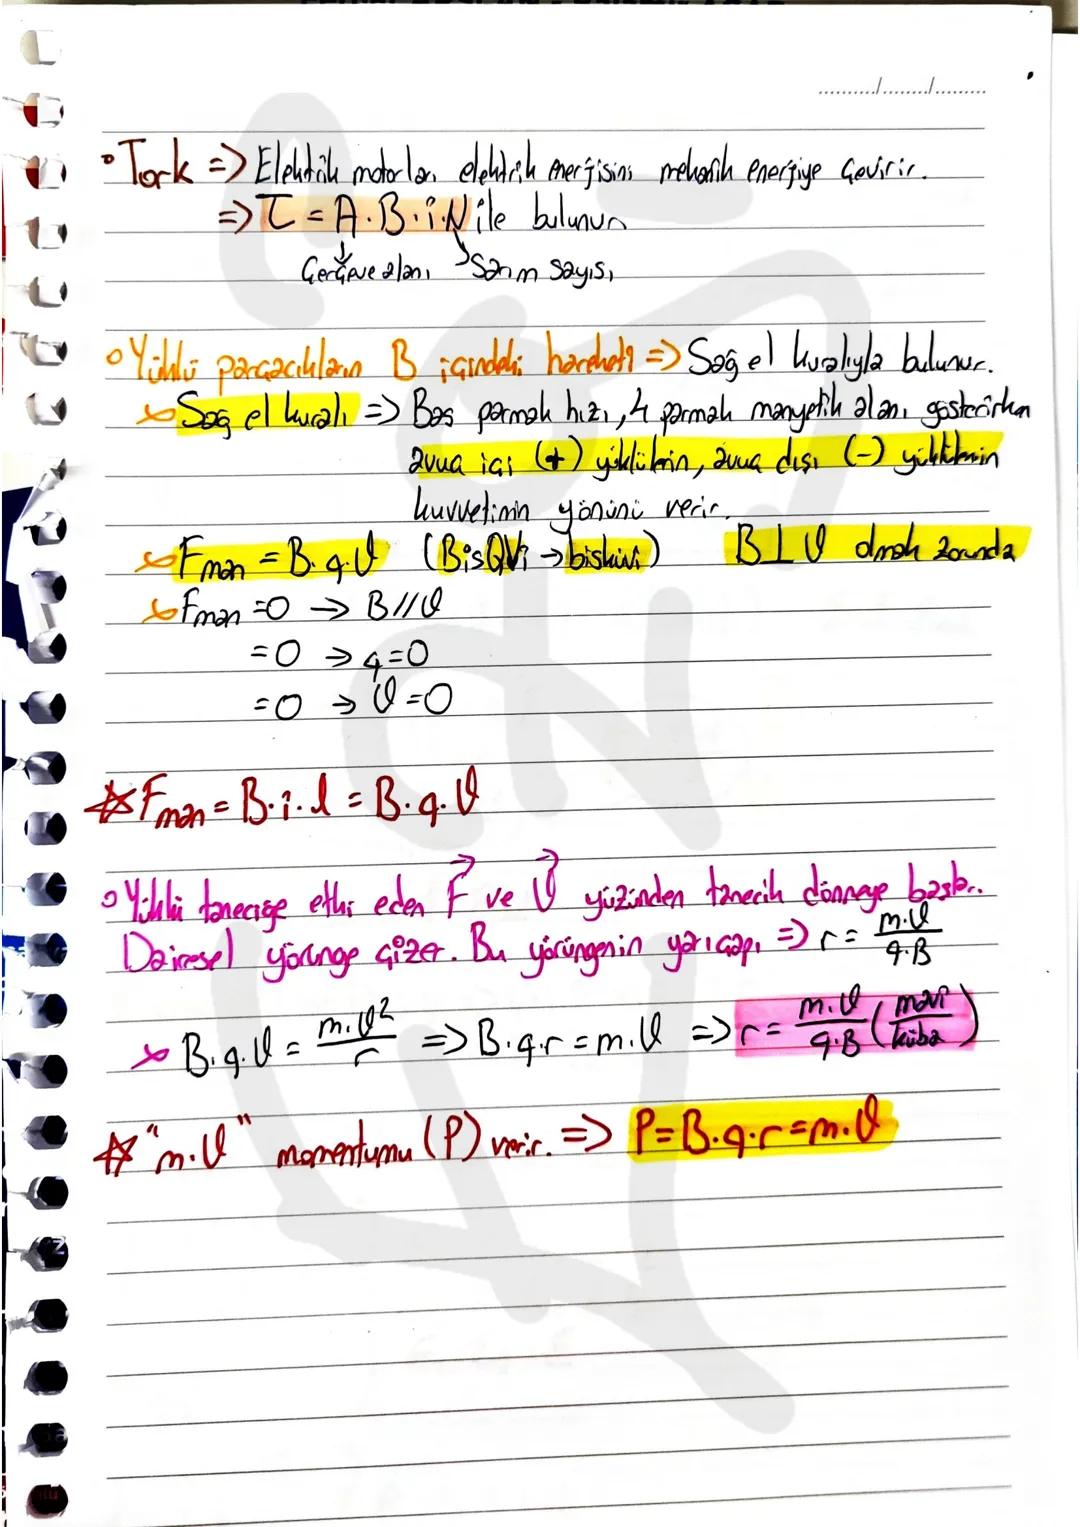 ........../......../.........
° Tork => Elektrik motorları elektrik enerjisini mekanik enerjiye çevirir.
=> τ = A.B.i.N ile bulunur
Çerçeve alanı Sarım sayısı
° Yüklü parçacıkların B içindeki hareketi => Sağ el kuralıyla bulunur.
Sağ el kuralı => Baş parmak hızı, 4 parmak manyetik alanı gösterirken
avua içi (+) yüklülerin, avua dışı (-) yüklülerin
kuvvetinin yönünü verir.
Fman = B.q.V (BisQVi → bisküvi) B⊥V olmak zorunda
Fman = 0 → B//V
= 0 → q=0
= 0 → V=0
Fman = B.i.l = B.q.V
° Yüklü taneciğe etki eden F ve V yüzünden tanecik dönmeye başlar.
Dairesel yörünge çizer. Bu yörüngenin yarıçapı => r = m.V/q.B
B.q.V = m.V²/r => B.q.r = m.V => r = m.V/q.B (mavi/küba)
"m.V" momentumu (P) verir. => P=B.q.r=m.V